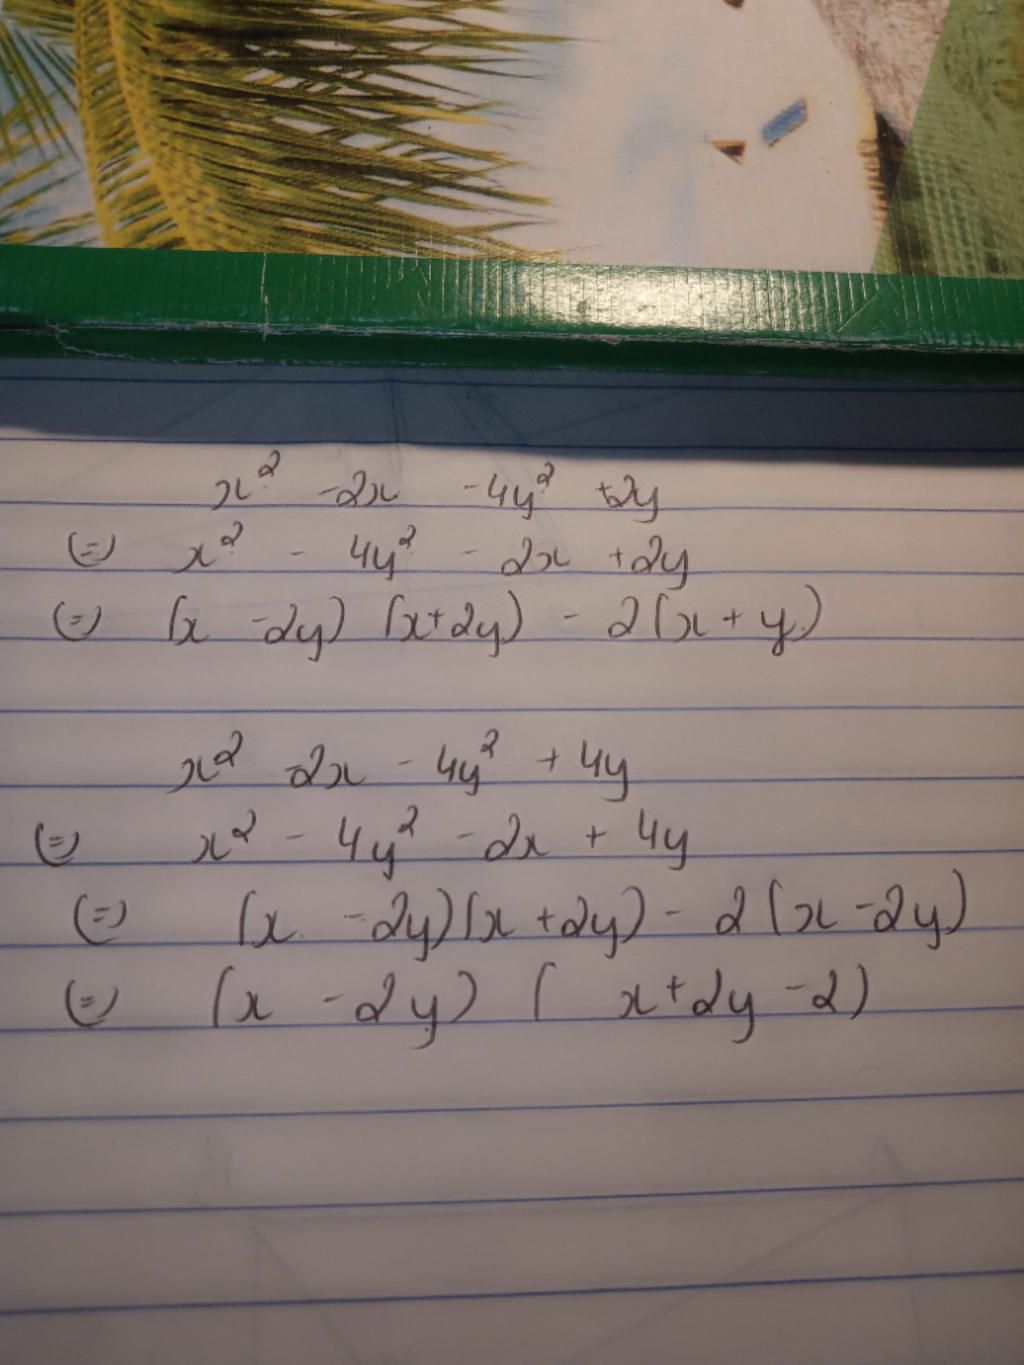 x² -2x -4y² +2y
(=) x² - 4y² - 2x +2y
(=) (x -2y) (x+2y) - 2(x + y)
x² -2x - 4y² + 4y
(=) x² - 4y² - 2x + 4y
(=) (x -2y)(x+2y) - 2(x-2y)
(=) (x -2y) ( x+2y-2)